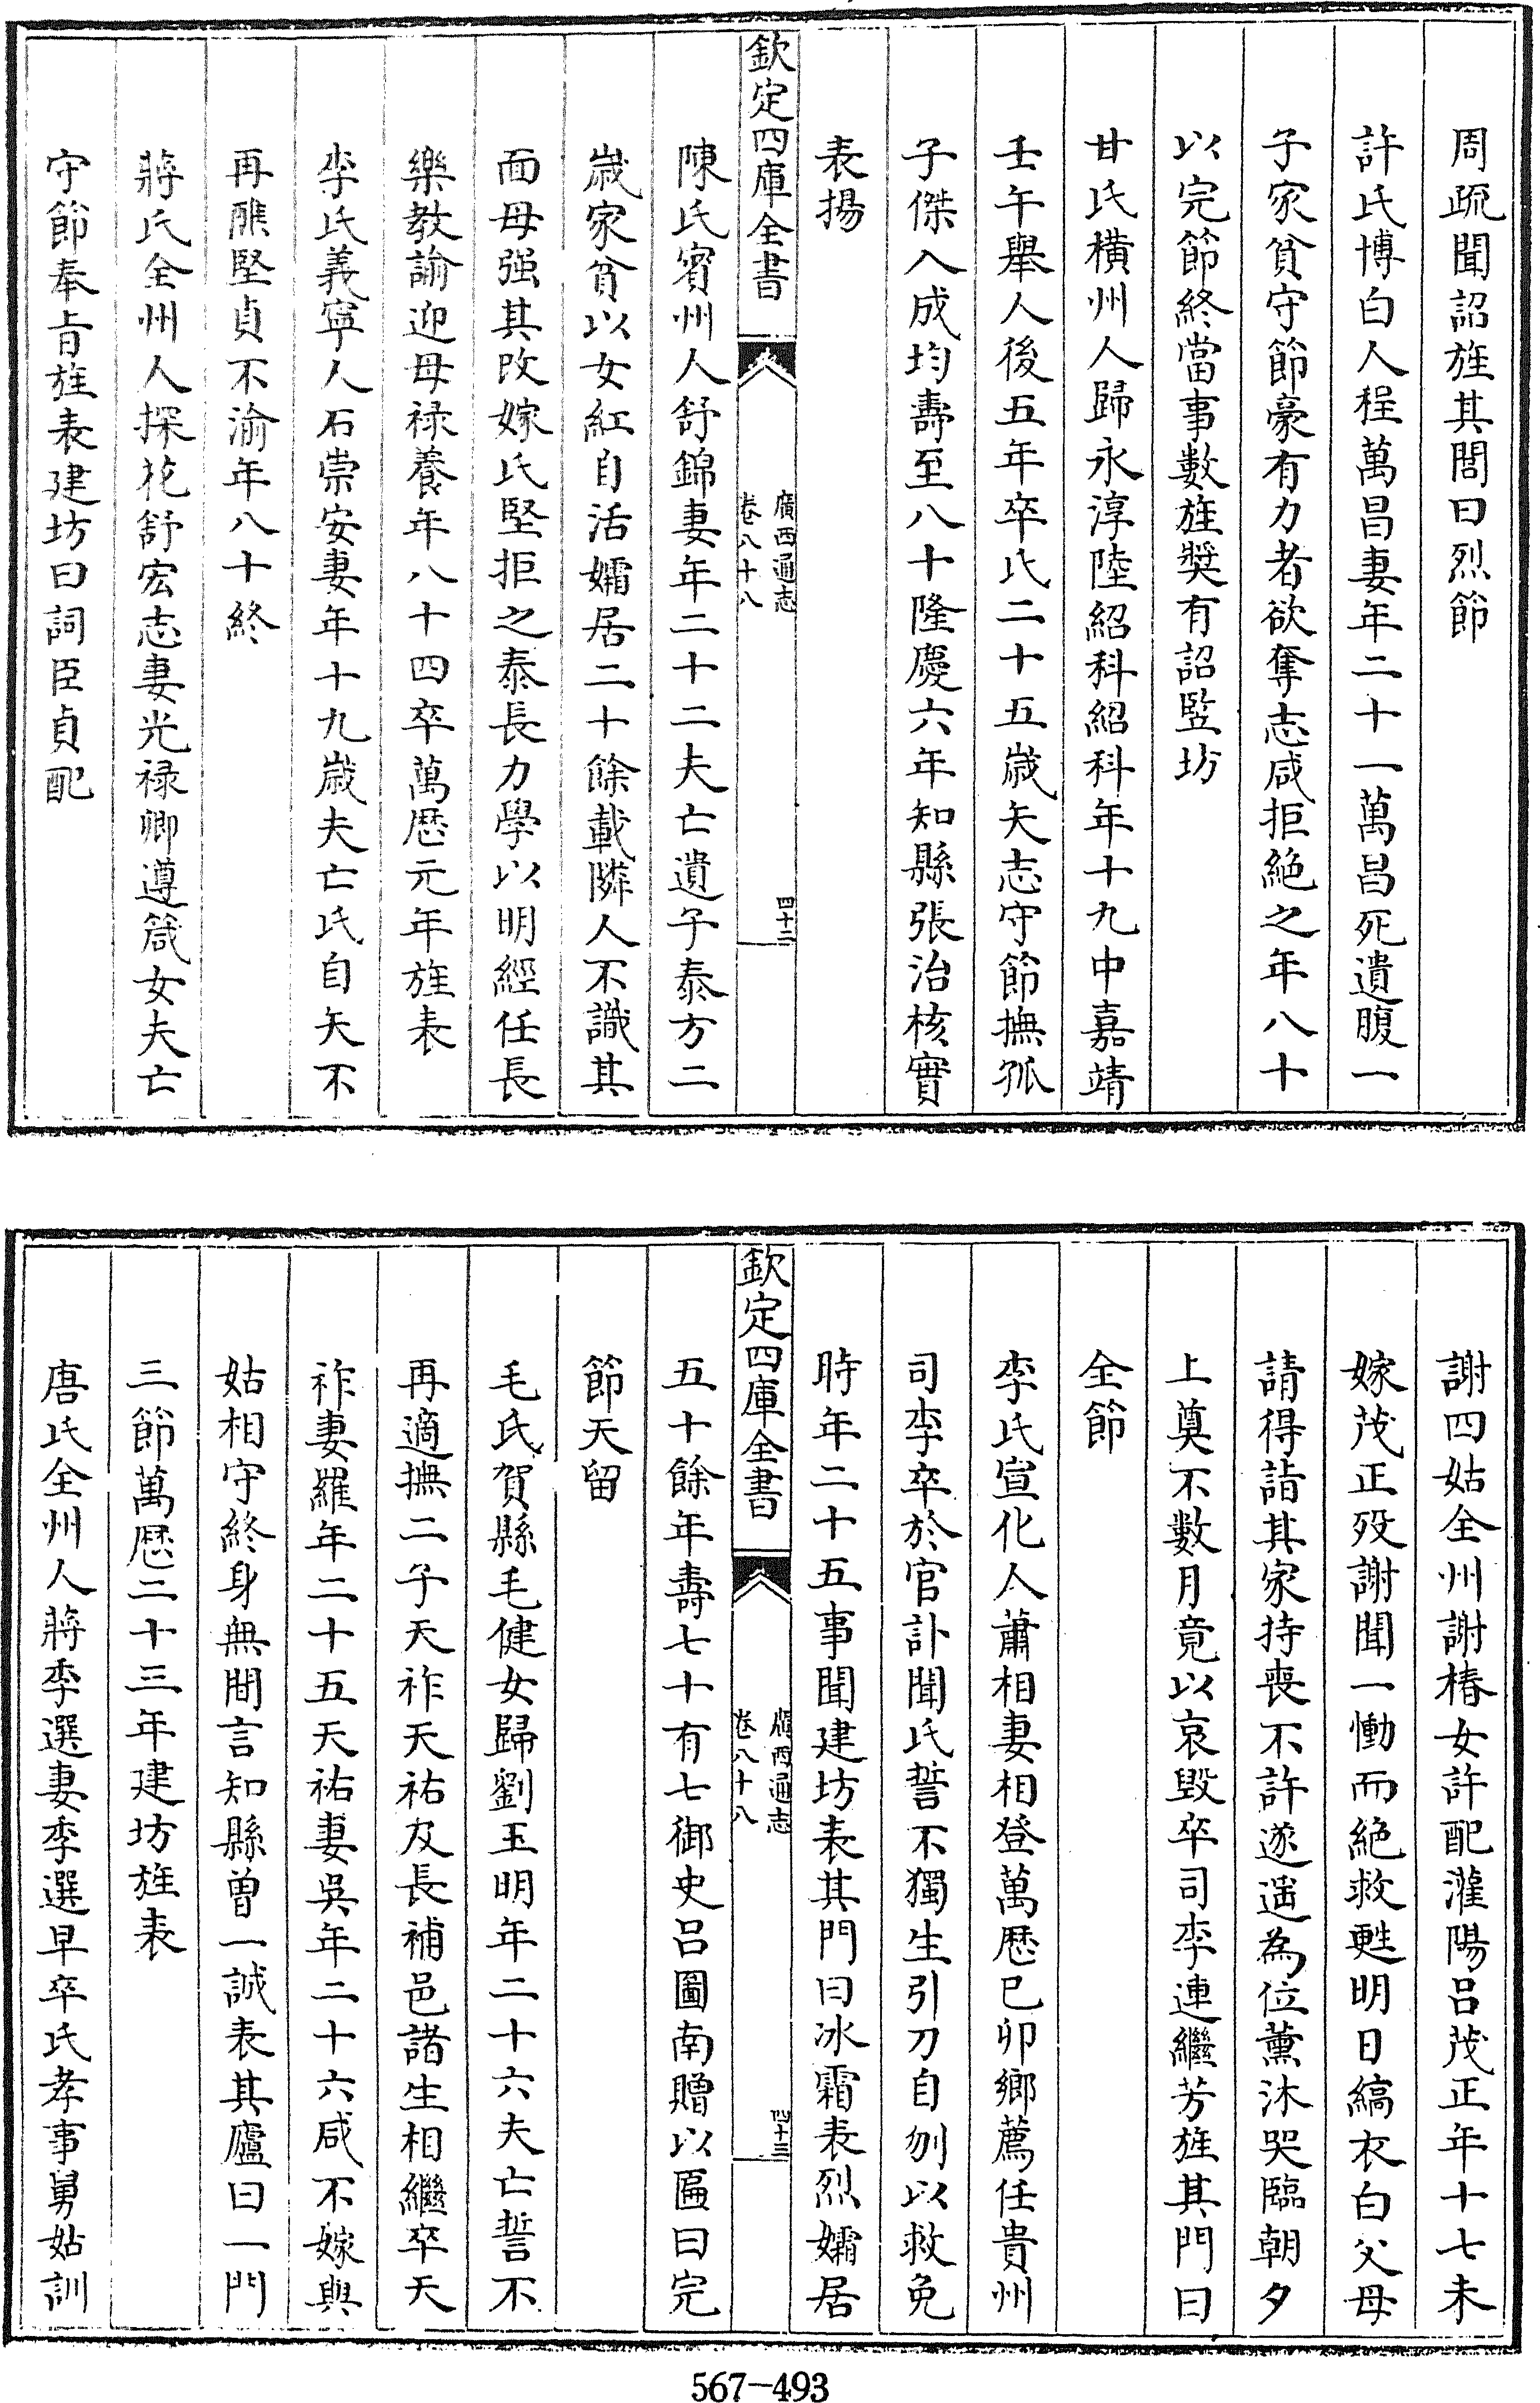 周疏聞詔旌其閭曰烈節
許氏博白人程萬昌妻年二十一萬昌死遺腹一
子家貧守節豪有力者欲奪志咸拒絶之年八十
以完節終當事數旌奬有詔監坊
甘氏橫州人歸永淳陸紹科紹科年十九中嘉靖
壬午舉人後五年卒氏二十五歳矢志守節撫孤
子傑入成均壽至八十隆慶六年知縣張治核實
表揚
欽定四庫全書
廣西通志
卷八十八
四十二
陳氏賓州人舒錦妻年二十二夫亡遺子泰方二
歳家貧以女紅自活孀居二十餘載隣人不識其
面母强其改嫁氏堅拒之泰長力學以明經任長
樂教諭迎母禄養年八十四卒萬厯元年旌表
李氏義寧人石崇安妻年十九歳夫亡氏自矢不
再醮堅貞不渝年八十終
蔣氏全州人探花舒宏志妻光禄卿遵箴女夫亡
守節奉旨旌表建坊曰詞臣貞配
謝四姑全州謝椿女許配灌陽呂茂正年十七未
嫁茂正殁謝聞一慟而絶救甦明日縞衣白父母
請得詣其家持喪不許遂遥為位薰沐哭臨朝夕
上奠不數月竟以哀毀卒司李連繼芳旌其門曰
全節
李氏宣化人蕭相妻相登萬厯已卯鄉薦任貴州
司李卒於官訃聞氏誓不獨生引刀自刎以救免
時年二十五事聞建坊表其門曰冰霜表烈孀居
欽定四庫全書
廣西通志
卷八十八
四十三
五十餘年壽七十有七御史呂圖南贈以匾曰完
節天留
毛氏賀縣毛健女歸劉玉明年二十六夫亡誓不
再適撫二子天祚天祐及長補邑諸生相繼卒天
祚妻羅年二十五天祐妻吳年二十六咸不嫁與
姑相守終身無間言知縣曾一誠表其廬曰一門
三節萬厯二十三年建坊旌表
唐氏全州人蔣季選妻季選早卒氏孝事舅姑訓
567-493